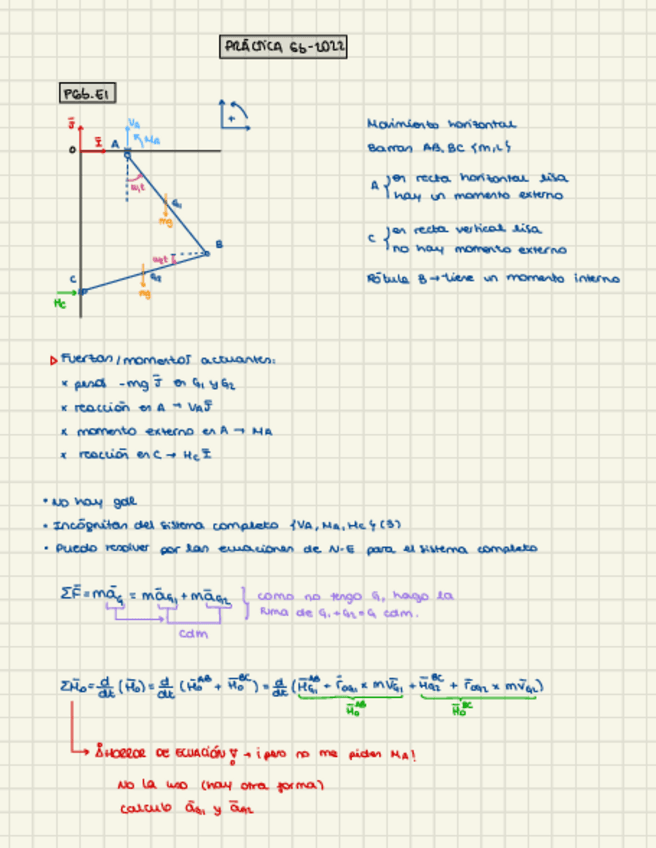 PRÁCTICA 6b-2022
P6b.E1
J
I
O
A
VA
MA
ω₁t
G₁
mg
B
ω₂t
G₂
mg
C
Hc
+
Movimiento horizontal
Barras AB, BC {m,L}
A { en recta horizontal lisa
hay un momento externo
C { en recta vertical lisa
no hay momento externo
Rótula B → tiene un momento interno
▷ Fuerzas/momentos actuantes:
x peso -mg J̄ en G₁ y G₂
x reacción en A → VA J̄
x momento externo en A → MA
x reacción en C → Hc Ī
• No hay gdl
• Incógnitas del sistema completo {VA, MA, Hc} (3)
• Puedo resolver por las ecuaciones de N-E para el sistema completo
ΣF̄ = māG = māG₁ + māG₂ } como no tengo G, hago la
suma de G₁+G₂=G cdm.
cdm
ΣM̄o = d/dt (H̄o) = d/dt (H̄o^AB + H̄o^BC) = d/dt (H̄G₁^AB + r̄OG₁ x mv̄G₁ + H̄G₂^BC + r̄OG₂ x mv̄G₂)
H̄o^AB
H̄o^BC
¡HORROR DE ECUACIÓN! → ¡pero no me piden MA!
No la uso (hay otra forma)
calculo āG₁ y āG₂